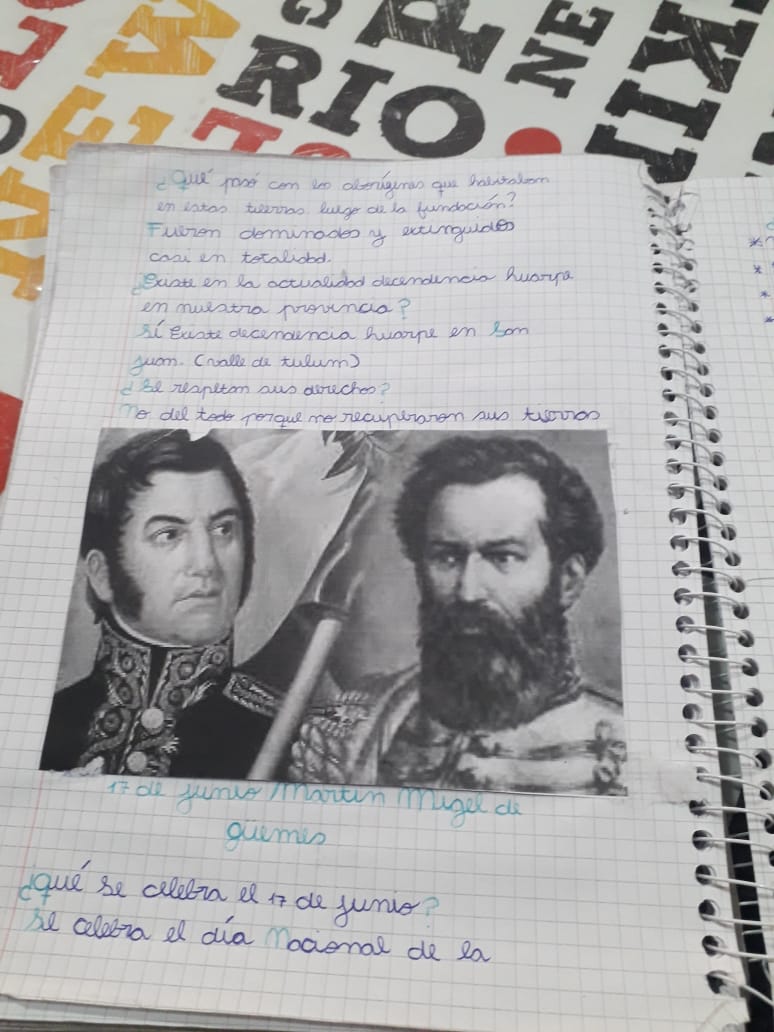 RIO
NE
NEW
KIJ
¿Qué pasó con los aborígenes que habitaban
en estas tierras luego de la fundación?
Fueron dominados y extinguidos
casi en totalidad.
¿Existe en la actualidad decendencia huarpe
en nuestra provincia?
Sí Existe decendencia huarpe en San
Juan. (valle de tulum)
¿Se respetan sus derechos?
No del todo porque no recuperaron sus tierras
17 de junio Martin Migel de
güemes
¿qué se celebra el 17 de junio?
Se celebra el día Nacional de la